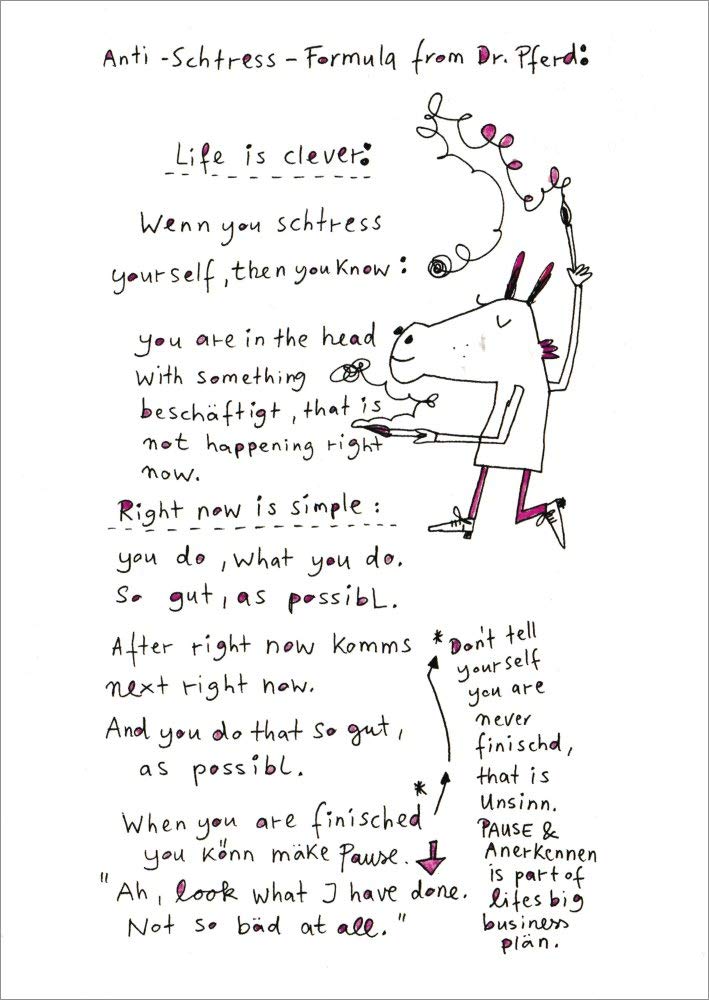 Anti-Schtress-Formula from Dr. Pferd:
Life is clever:
Wenn you schtress
yourself, then you know:
you are in the head
with something
beschäftigt, that is
not happening right
now.
Right now is simple:
you do, what you do.
So gut, as possibL.
After right now komms
next right now.
And you do that so gut,
as possibl.
When you are finisched
you könn mäke Pause.
"Ah, look what I have done.
Not so bäd at all."
* Don't tell
yourself
you are
never
finischd,
that is
Unsinn.
PAUSE &
Anerkennen
is part of
lifes big
business
plän.
*